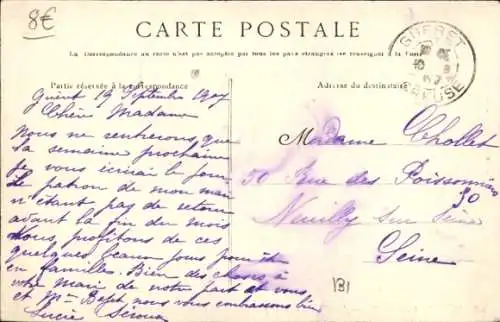 8€
CARTE POSTALE
La Correspondance au recto n'est pas acceptée par tous les pays étrangers (se renseigner à la Poste)
Partie réservée à la correspondance
Adresse du destinataire
GUERET
CREUSE
Guéret 19 Septembre 1907
Chère Madame
Nous ne rentrerons que
la semaine prochaine
je vous écrirai le jour
Le patron de mon mari
n'étant pas de retour
avant la fin du mois
Nous profitons de ces
quelques beaux jours pour être
en familles. Bien des choses à
votre mari de notre part et vous
et Mme nous vous embrassons bien
Lucie
Madame Chollet
50 Rue des Poissonniers
50
Neuilly sur Seine
Seine
131